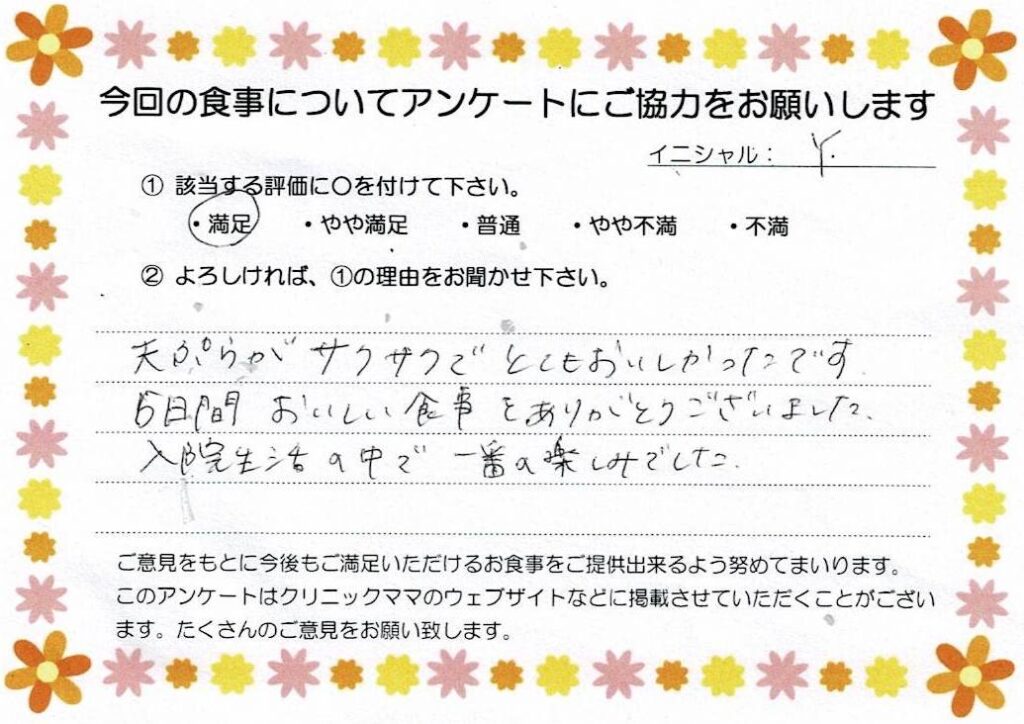 今回の食事についてアンケートにご協力をお願いします
イニシャル： Y.
① 該当する評価に〇を付けて下さい。
・満足 ・やや満足 ・普通 ・やや不満 ・不満
② よろしければ、①の理由をお聞かせ下さい。
天ぷらが サクサクで とてもおいしかったです.
5日間 おいしい食事をありがとうございました.
入院生活の中で 一番の楽しみでした.
ご意見をもとに今後もご満足いただけるお食事をご提供出来るよう努めてまいります。
このアンケートはクリニックママのウェブサイトなどに掲載させていただくことがござい
ます。たくさんのご意見をお願い致します。